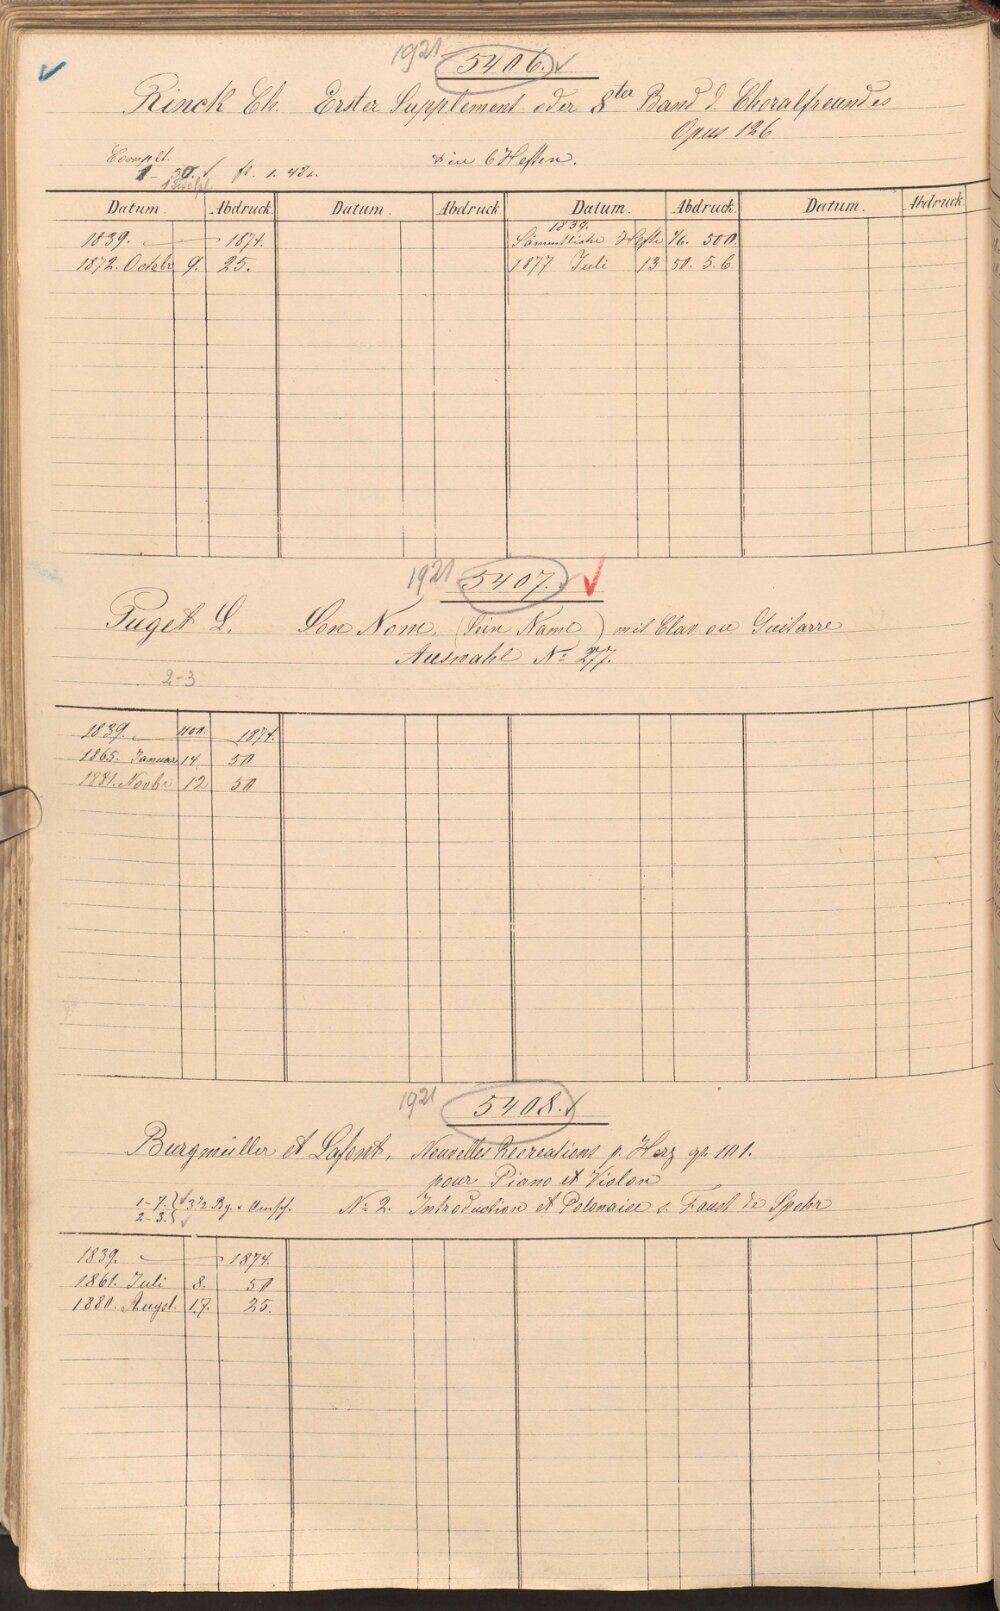 1921 5406.
Rinck Ch. Erster Supplement oder 8ter Band d. Choralfreundes
Opus 126
Complt. in 6 Heften.
1 - 50. fl. 1. 48x.
Datum. Abdruck Datum. Abdruck Datum. Abdruck Datum. Abdruck
1839.
1839. — 1874. Sämmtliche Hefte 1/6. 500.
1872. Octobr 9. 25. 1877 Juli 13 50. 5. 6.
1921 5407.
Puget L. Son Nom. (Sein Name) mit Clav ou Guitarre
Auswahl No 277.
2-3
1839. — 400. 1874.
1865. Januar 14 50
1881. Novbr 12 50
1921 5408.
Burgmüller et Lafont, Nouvelles Recreations p. Herz op. 101.
pour Piano et Violon
1-7. 3 1/2 Bg. Umsch. No 2. Introduction et Polonaise s. Faust de Spohr
2-3.
1839. — 1874.
1861. Juli 8. 50
1880. Augst. 17. 25.